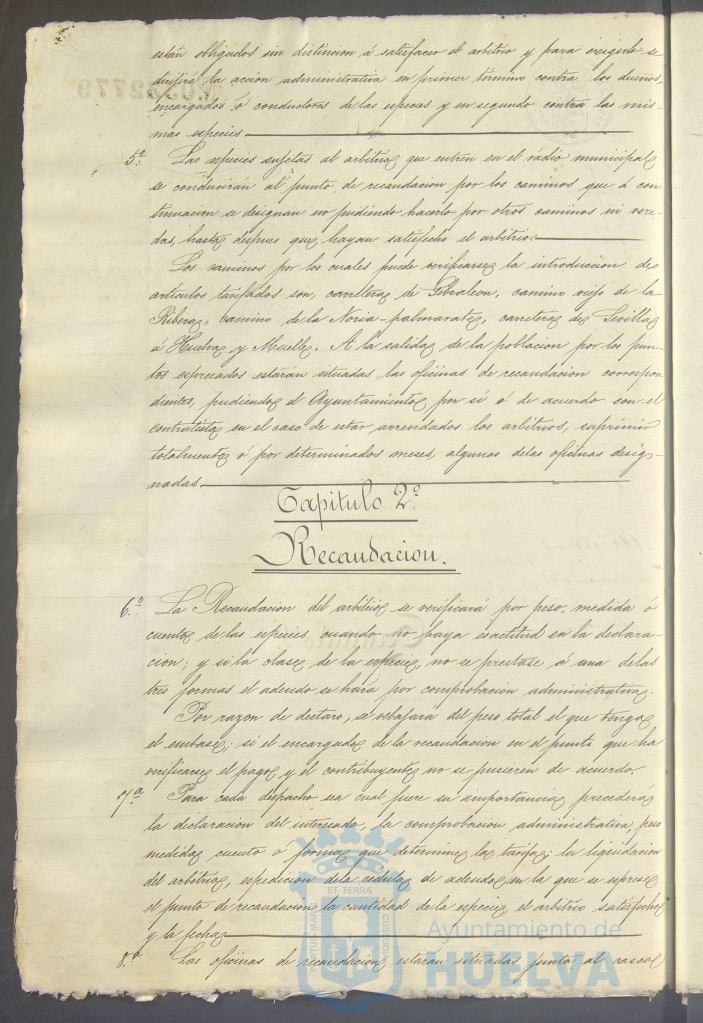 estan obligados sin distincion á satisfacer el arbitrio y para exigirle se
dirijirá la accion administrativa en primer término contra los dueños,
encargados ó conductores de las especies y en segundo contra las mis-
mas especies.
5º Las especies sujetas al arbitrio que entren en el rádio municipal
se conducirán al punto de recaudacion por los caminos que á con
tinuacion se designan no pudiendo hacerlo por otros caminos ni vere-
das, hasta despues que hayan satisfecho el arbitrio.
Los caminos por los cuales puede verificarse la introduccion de
artículos tarifados son, carretera de Gibraleon, camino viejo de la
Ribera, camino de la Noria-palmarete, carretera de Sevilla
á Huelva y Muelle. A la salida de la poblacion por los pun-
tos espresados estarán situadas las oficinas de recaudacion correspon
dientes, pudiendo el Ayuntamiento por si ó de acuerdo con el
contratista en el caso de estar arrendados los arbitrios, suprimir
totalmente ó por determinados meses, algunas delas oficinas desig-
nadas.
Capitulo 2º
Recaudacion.
6º La Recaudacion del arbitrio se verificará por peso, medida ó
cuento de las especies cuando no haya esactitud en la declara-
cion; y si la clase de la especie, no se prestase á una delas
tres formas el adeudo se hará por comprobacion administrativa.
Por razon de destaro, se rebajara del peso total el que tenga
el embase; si el encargado de la recaudacion en el punto que ha
verificarse el pago y el contribuyente no se pusieren de acuerdo.
7ª Para cada despacho sea cual fuere su importancia precederá
la declaracion del interesado, la comprobacion administrativa, peso
medida cuento ó forma que determine la tarifa; la liquidacion
del arbitrio, espedicion dela cédula de adeudo en la que se esprese
el punto de recaudacion la cantidad de la especie el arbitrio satisfecho
y la fecha
8.ª Las oficinas de recaudacion estaran situadas junto al casco
Ayuntamiento de
HUELVA
PORTUS MARIS
ET TERRÆ
CUSTODIA